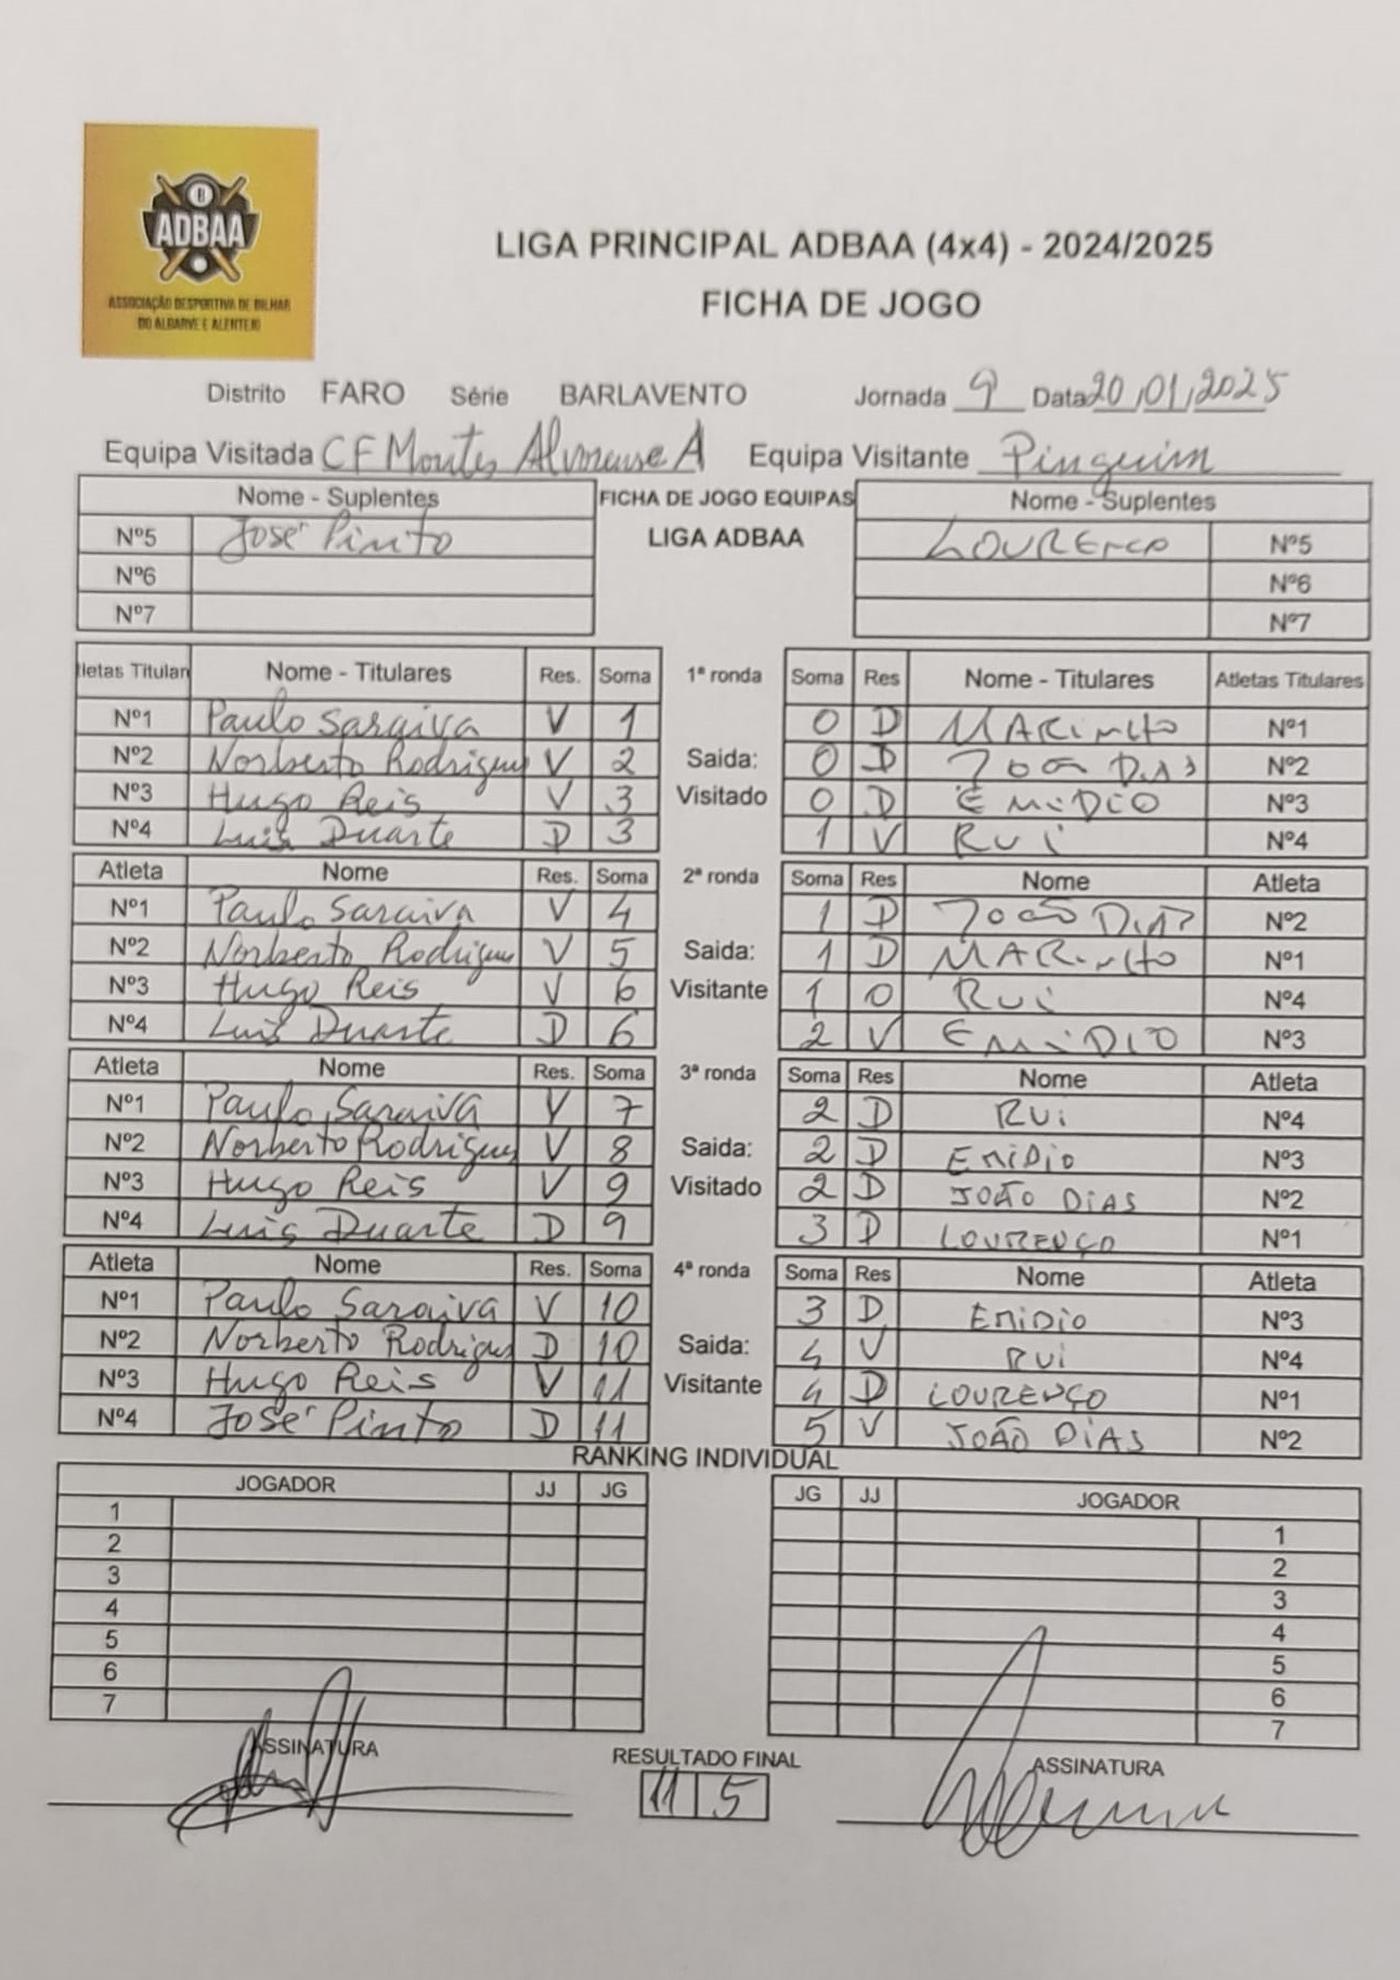 ADBAA
ASSOCIAÇÃO DESPORTIVA DE BILHAR
DO ALGARVE E ALENTEJO
LIGA PRINCIPAL ADBAA (4x4) - 2024/2025
FICHA DE JOGO
Distrito FARO Série BARLAVENTO Jornada 9 Data 20/01/2025
Equipa Visitada CF Montes Alvorense A Equipa Visitante Pinguim
Nome - Suplentes FICHA DE JOGO EQUIPAS Nome - Suplentes
Nº5 José Pinto LIGA ADBAA LOURENCO Nº5
Nº6 Nº6
Nº7 Nº7
tletas Titular Nome - Titulares Res. Soma 1ª ronda Soma Res Nome - Titulares Atletas Titulares
Nº1 Paulo Saraiva V 1 0 D MARINHO Nº1
Nº2 Norberto Rodrigues V 2 Saida: 0 D JOÃO DIAS Nº2
Nº3 Hugo Reis V 3 Visitado 0 D EMIDIO Nº3
Nº4 Luis Duarte D 3 1 V RUI Nº4
Atleta Nome Res. Soma 2ª ronda Soma Res Nome Atleta
Nº1 Paulo Saraiva V 4 1 D JOÃO DIAS Nº2
Nº2 Norberto Rodrigues V 5 Saida: 1 D MARINHO Nº1
Nº3 Hugo Reis V 6 Visitante 1 0 RUI Nº4
Nº4 Luis Duarte D 6 2 V EMIDIO Nº3
Atleta Nome Res. Soma 3ª ronda Soma Res Nome Atleta
Nº1 Paulo Saraiva V 7 2 D RUi Nº4
Nº2 Norberto Rodrigues V 8 Saida: 2 D EMIDIO Nº3
Nº3 Hugo Reis V 9 Visitado 2 D JOÃO DIAS Nº2
Nº4 Luis Duarte D 9 3 D LOURENÇO Nº1
Atleta Nome Res. Soma 4ª ronda Soma Res Nome Atleta
Nº1 Paulo Saraiva V 10 3 D EMIDIO Nº3
Nº2 Norberto Rodrigues D 10 Saida: 4 V RUI Nº4
Nº3 Hugo Reis V 11 Visitante 4 D LOURENÇO Nº1
Nº4 José Pinto D 11 5 V JOÃO DIAS Nº2
RANKING INDIVIDUAL
JOGADOR JJ JG JG JJ JOGADOR
1 1
2 2
3 3
4 4
5 5
6 6
7 7
ASSINATURA RESULTADO FINAL ASSINATURA
11 5